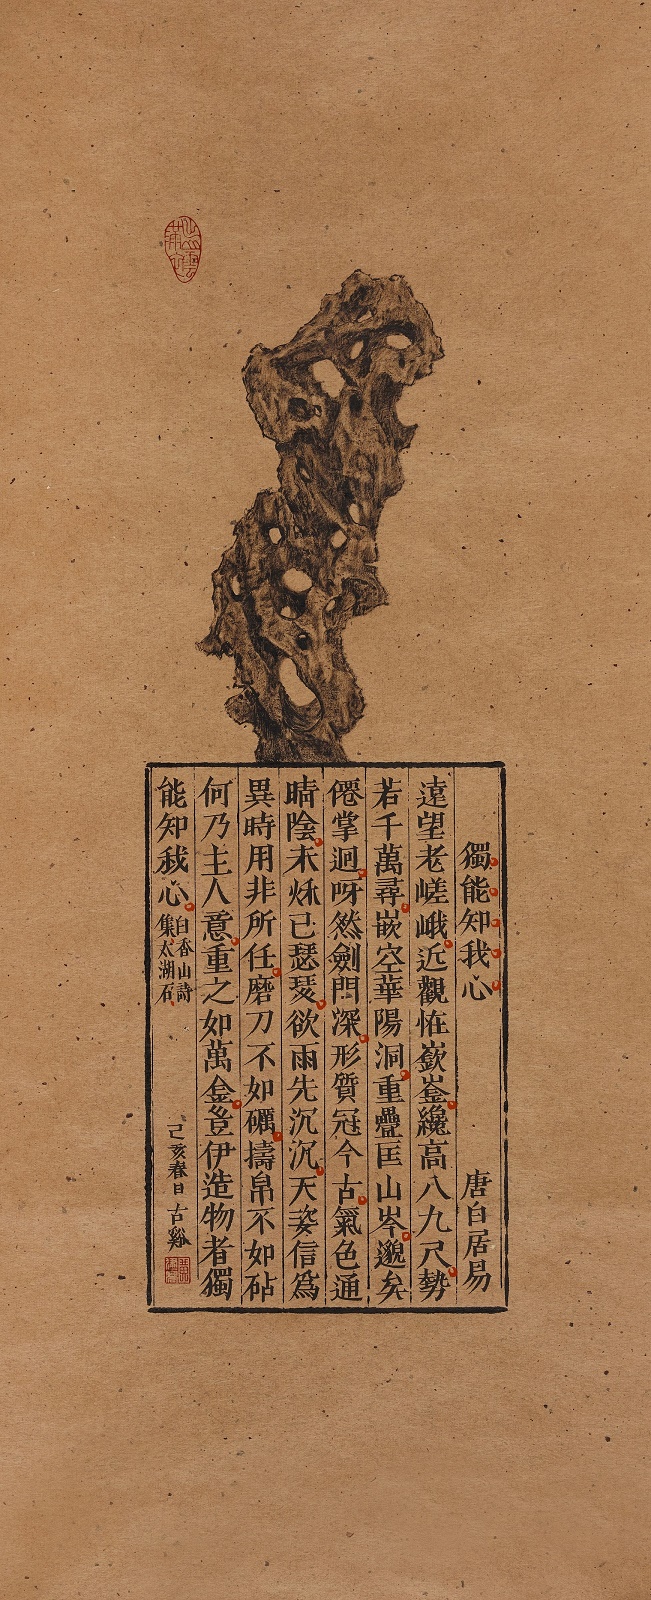 獨能知我心　唐白居易
遠望老嵯峨近觀恠嶔崟纔高八九尺勢
若千萬尋嵌空華陽洞重疊匡山岑邈矣
僊掌迥呀然劍門深形質冠今古氣色通
晴陰未秌已瑟瑟欲雨先沉沉天姿信爲
異時用非所任磨刀不如礪擣帛不如砧
何乃主人意重之如萬金豈伊造物者獨
能知我心
白香山詩
集太湖石
己亥春日古谿